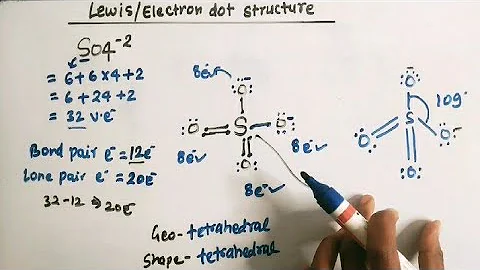 Lewis/Electron dot structure
SO4-2
= 6+6×4+2
= 6+24+2
= 32 v.e-
Bond pair e- = 12e-
Lone pair e- = 20e-
32-12 ⇒ 20e-
8e-
O-
O = S - O-
O
8e-
8e-
8e-
Geo-tetrahedral
Shape- tetrahedral
O-
109°
S
O
O-
O